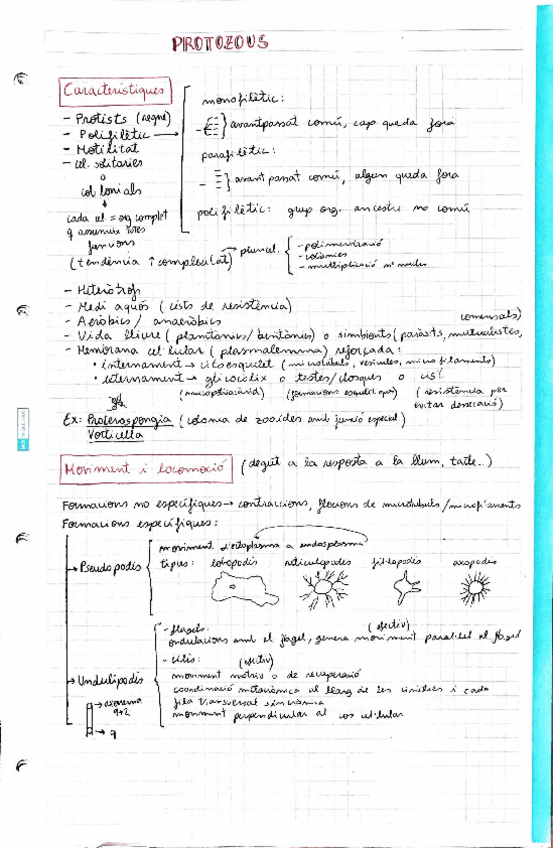 PROTOZOUS
Característiques
- Protists (regne)
- Polifilètic →
- Motilitat
- cèl. solitàries
o
colonials
↓
cada cèl = org complet
q assumeix totes
funcions
(tendència ↑ complexitat) → pluricel.
monofilètic:
avantpassat comú, cap queda fora
parafilètic:
avantpassat comú, algun queda fora
polifilètic: grup org. ancestre no comú
- polimerització
- colònies
- multiplicació nº nuclis
- Heteròtrof
- Medi aquós (cists de resistència)
- Aeròbics / anaeròbics
- Vida lliure (plantònics/bentònics) o simbionts (paràsits, mutualistes, comensals)
- Membrana cel·lular (plasmalemma) reforçada:
• internament → citoesquelet (microtúbuls, vesícules, microfilaments)
• externament → glicocàlix o testes/closques o cist
(mucopolisacàrid) (formacions esquelèt. que) (resistència per
evitar dessecació)
Ex: Proterospongia (colònia de zooides amb funció especial)
Vorticella
Moviment i locomoció (degut a la resposta a la llum, tacte...)
Formacions no específiques → contraccions, flexions de microtúbuls/microfilaments
Formacions específiques:
→ Pseudopodis
moviment d'ectoplasma a endoplasma
tipus: lobopodis reticulopodis filopodis axopodis
→ Undulipodis
→ axonema
9+2
→ 9
- flagels: (efectiu)
ondulacions amb el flagel, genera moviment paral·lel al flagel
- cilis: (efectiu)
moviment motriu o de recuperació
coordinació metacrònica al llarg de les cinèties i cada
fila transversal sincrònica
moviment perpendicular al cos cel·lular